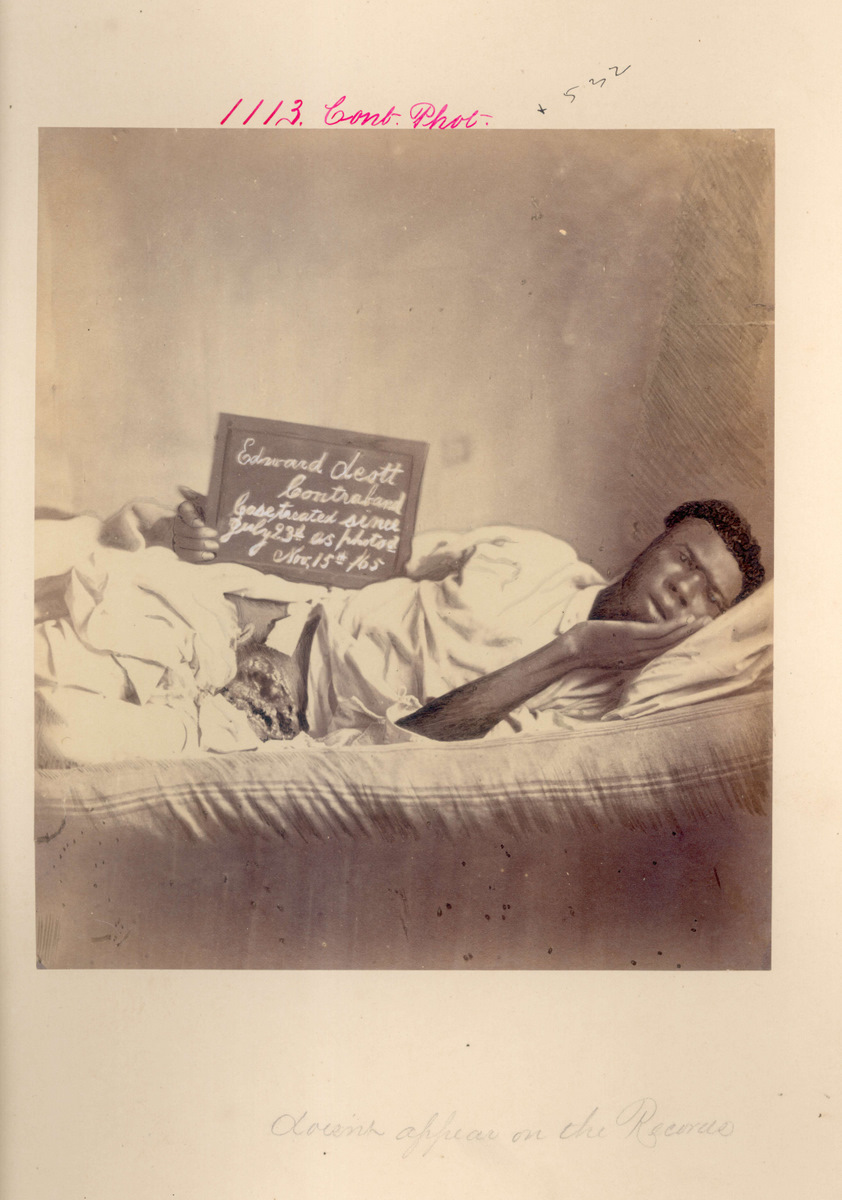 1113. Cont. Phot.
* 532
Edward Scott
Contraband
Case treated since
July 23d as photod
Nov. 15th /65
doesn't appear on the Records